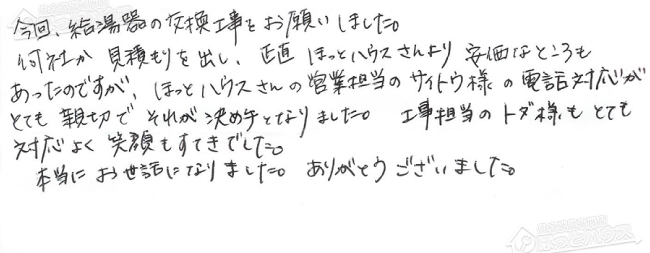 今回、給湯器の交換工事をお願いしました。
何社か 見積もりを出し、正直 ほっとハウスさんより 安価なところも
あったのですが、ほっとハウスさんの営業担当のサイトウ様の電話対応が
とても 親切で それが 決め手となりました。 工事担当のトダ様も とても
対応よく 笑顔もすてきでした。
本当に お世話になりました。ありがとうございました。
ほっとハウス